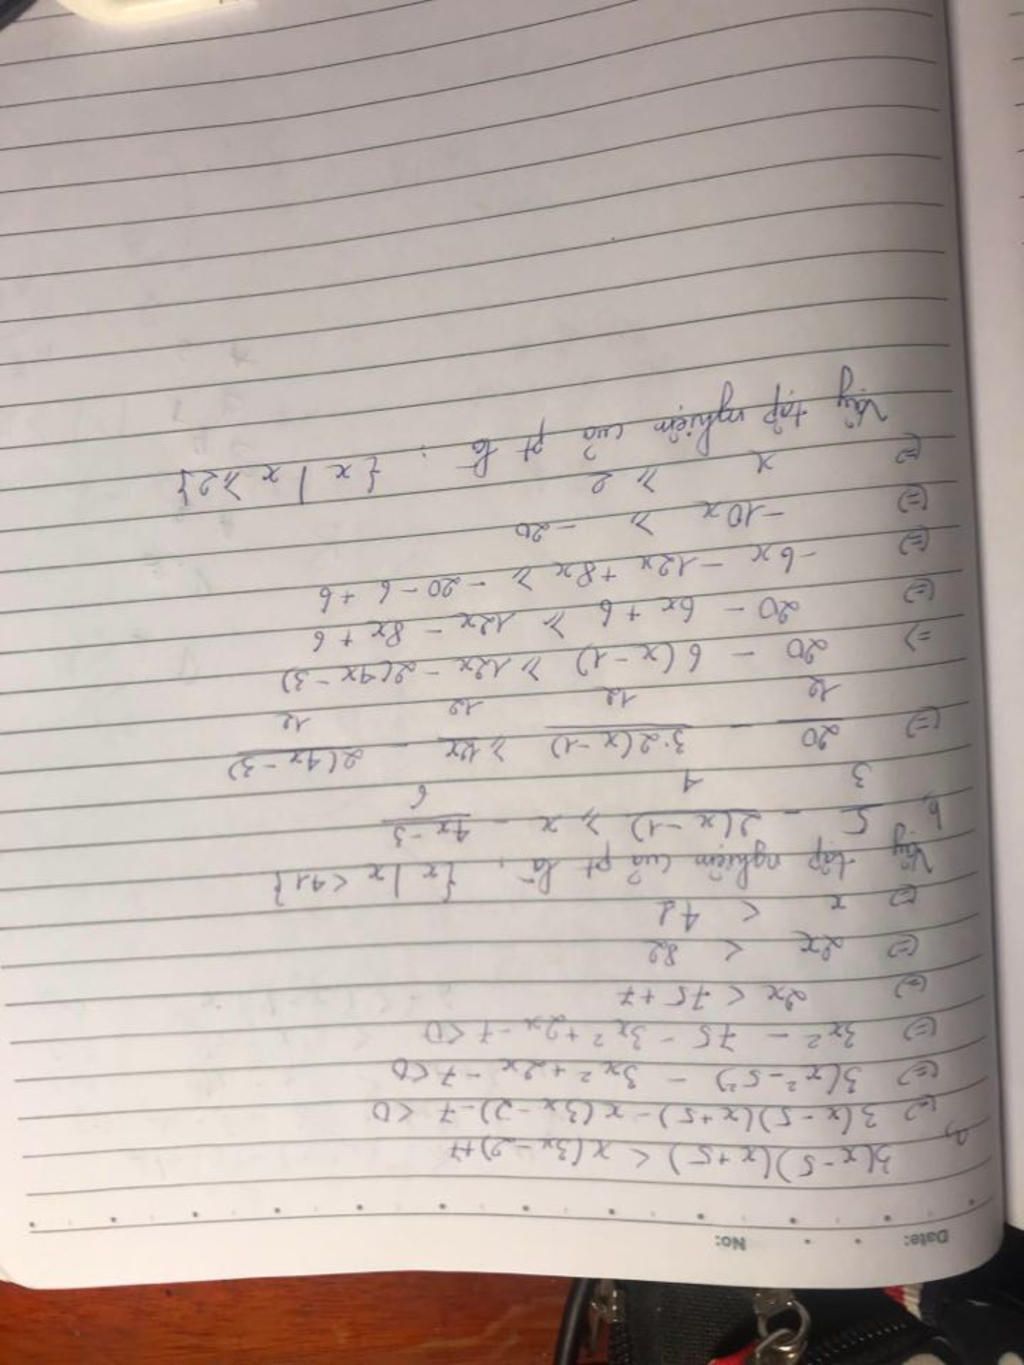 Date: No:
a, 3(x-5)(x+5) < x(3x-2)+7
(=) 3(x-5)(x+5) - x(3x-2) - 7 < 0
(=) 3(x² - 5²) - 3x² + 2x - 7 < 0
(=) 3x² - 75 - 3x² + 2x - 7 < 0
(=) 2x < 75 + 7
(=) 2x < 82
(=) x < 41
Vậy tập nghiệm của pt là: {x | x < 41}
b, 5/3 - 2(x-1)/4 ≥ x - (4x-3)/6
(=) 20/12 - 3.2(x-1)/12 ≥ 12x/12 - 2(4x-3)/12
=> 20 - 6(x-1) ≥ 12x - 2(4x-3)
(=) 20 - 6x + 6 ≥ 12x - 8x + 6
(=) -6x - 12x + 8x ≥ -20 - 6 + 6
(=) -10x ≥ -20
(=) x ≥ 2
Vậy tập nghiệm của pt là: {x | x ≥ 2}